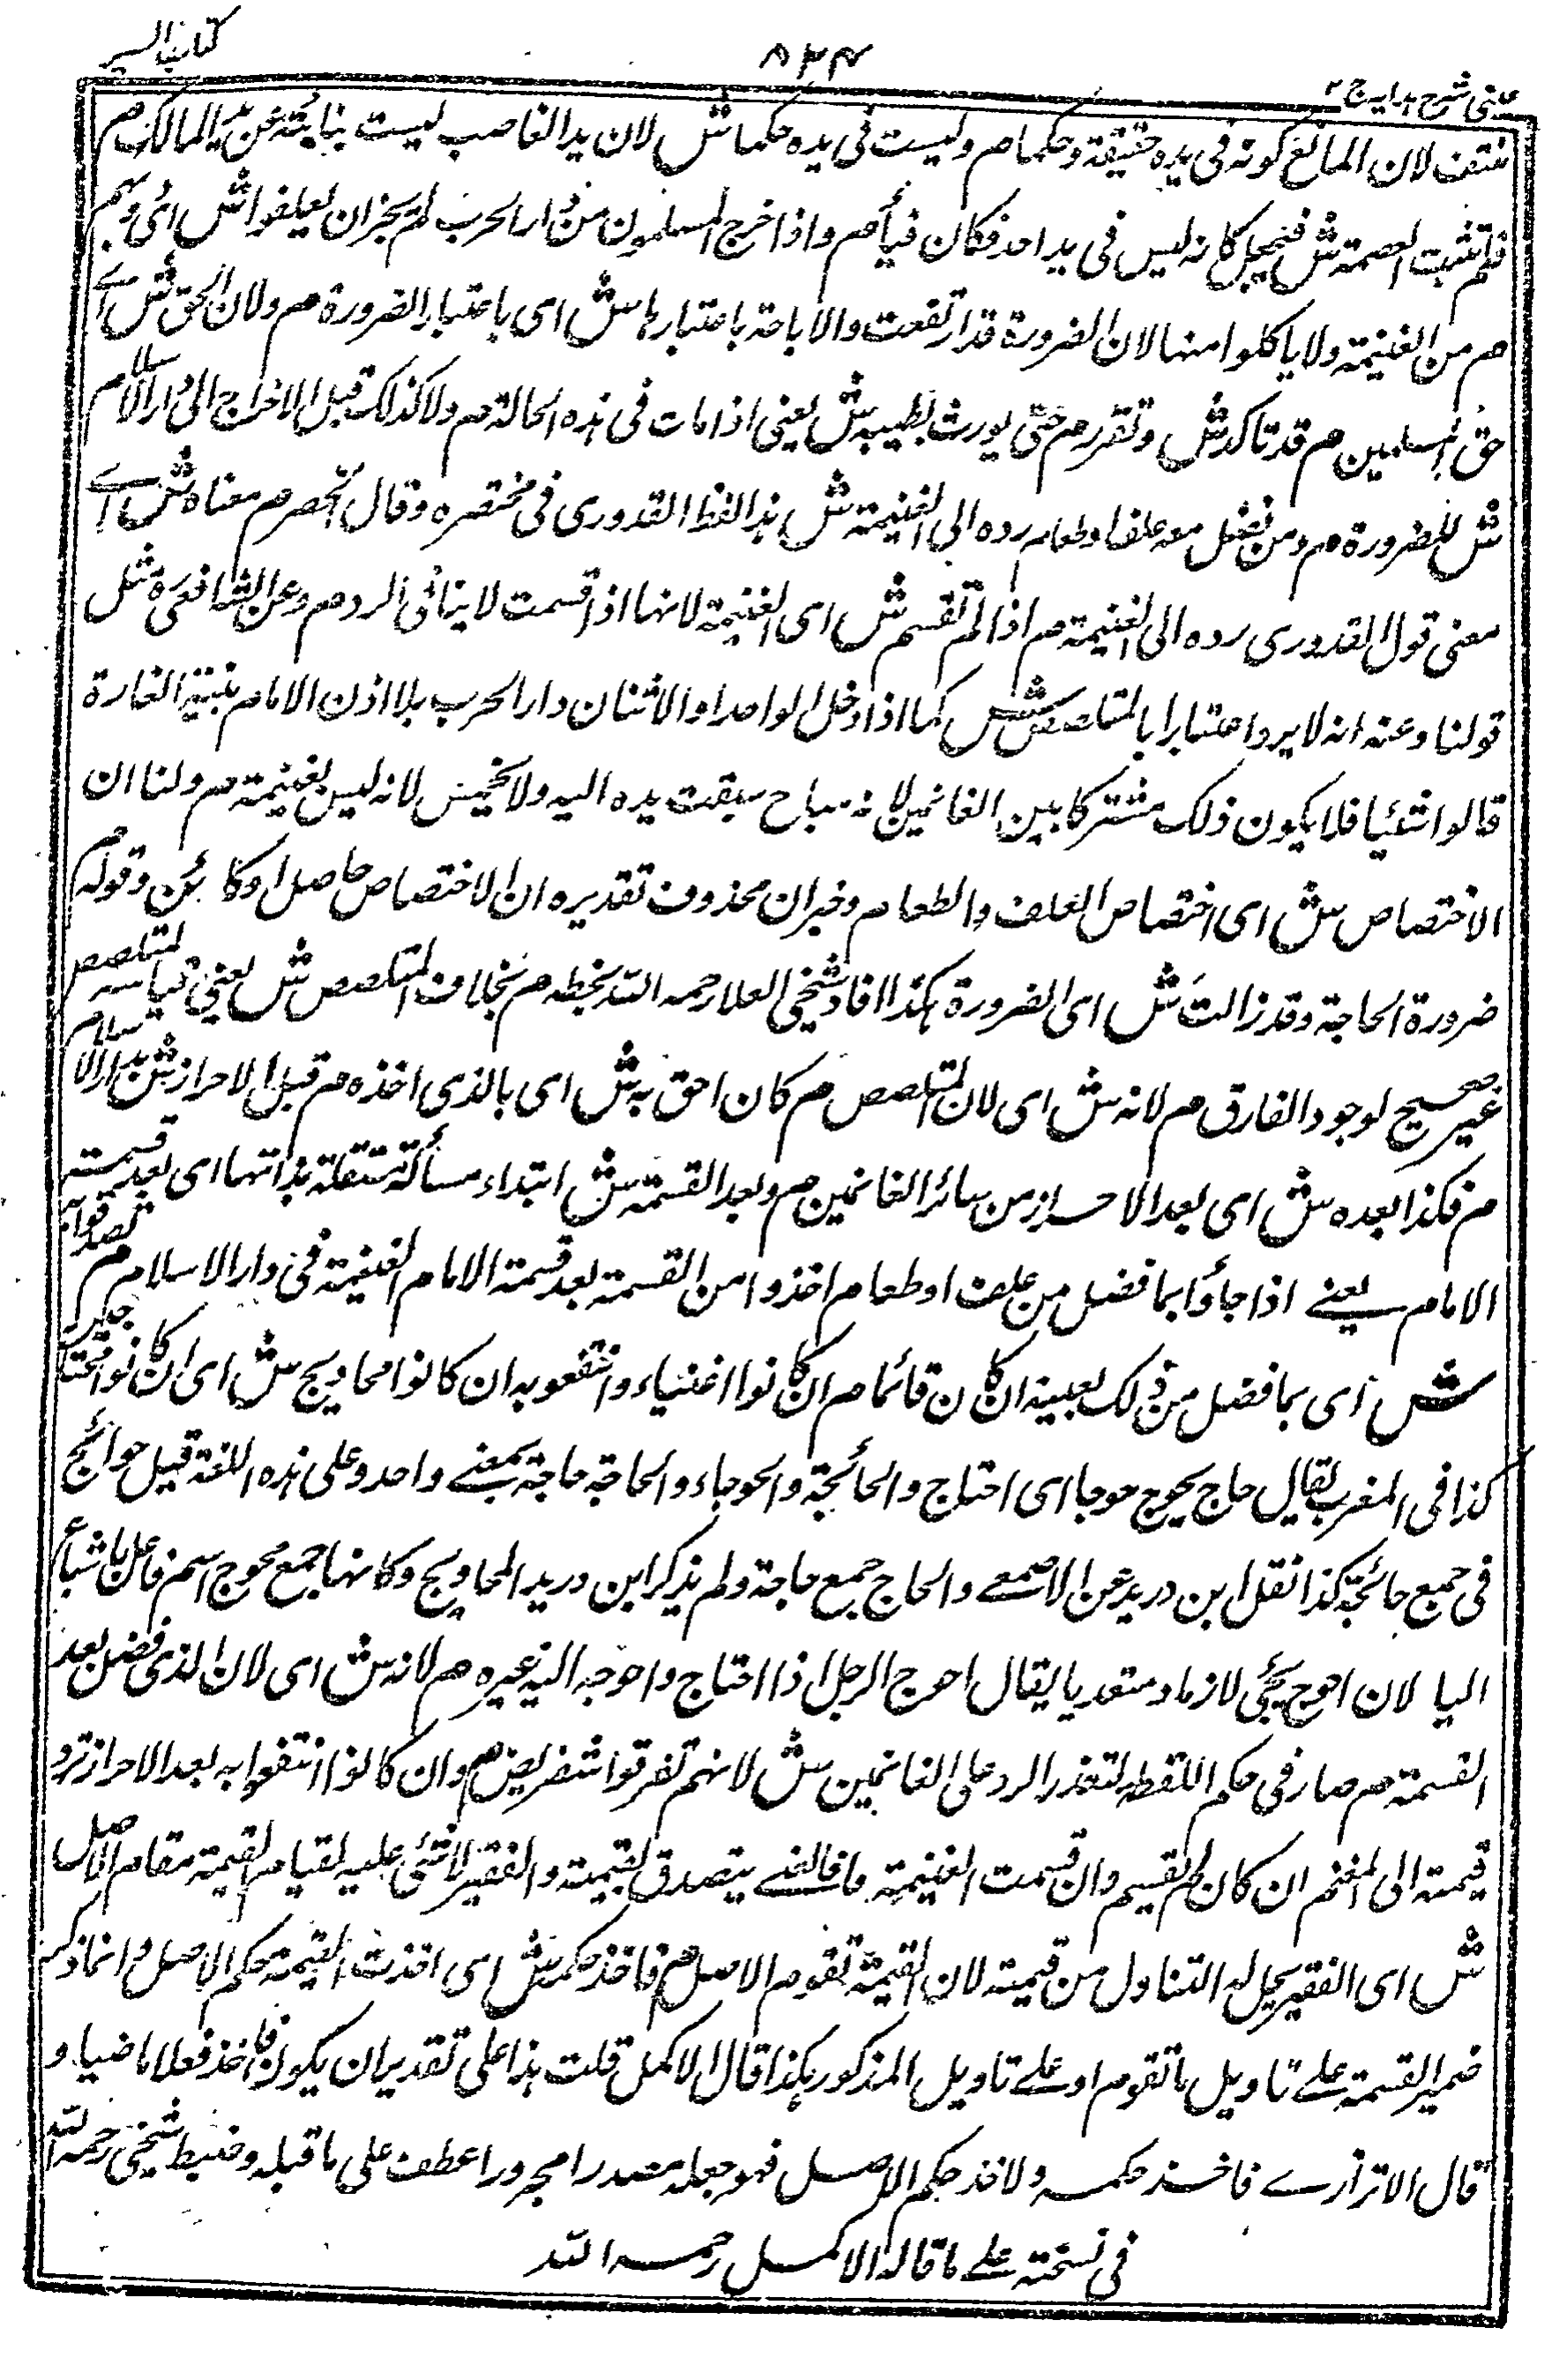 كتاب السير
٨٣٤
عينى شرح هدايه ج ٢
منتف لان المانع كونه فى يده حقيقة وحكما م وليست فى يده حكما ش لان يد الغاصب ليست بنائبة عن يد المالك م
فلم تثبت العصمة ش فيجعل كانه ليس فى يد احد فكان فيأ م واذا خرج المسلمون من دار الحرب لم يجز ان يعلفوا ش اى دوابهم
م من الغنيمة ولا ياكلوا منها لان الضرورة قد ارتفعت والاباحة باعتبارها ش اى باعتبار الضرورة م ولان الحق ش اے
حق المسلمين م قد تاكد ش وتقرر م حتى يورث نصيبه ش يعنى اذا مات فى هذه الحالة م ولا كذلك قبل الاخراج الى دار الاسلام
ش للضرورة م ومن فضل معه علف او طعام رده الى الغنيمة ش هذا لفظ القدورى فى مختصره وقال المصنف م معناه ش اے
معنى قول القدورى رده الى الغنيمة م اذا لم تقسم ش اى الغنيمة لانها اذا قسمت لا يتاتى الرد م وعن الشافعى رح مثل
قولنا وعنه انه لا يرد اعتبارا بالمتلصص ش كما اذا دخل الواحد او الاثنان دار الحرب بلا اذن الامام بنية الغارة
قالوا شئيا فلا يكون ذلك مشتركا بين الغانمين لانه مباح سبقت يده اليه ولا يخمس لانه ليس بغنيمة م ولنا ان
الاختصاص ش اى اختصاص العلف والطعام وخبر ان محذوف تقديره ان الاختصاص حاصل او كائن وقوله م
ضرورة الحاجة وقد زالت ش اى الضرورة هكذا افاد شيخى العلا رحمه الله بخطه م بخلاف المتلصص ش يعنى قياسه المتلصص
غير صحيح لوجود الفارق م لانه ش اى لان المتلصص م كان احق به ش اى بالذى اخذه م قبل الاحراز ش بدار الاسلام
م فكذا بعده ش اى بعد الاحراز من سائر الغانمين م وبعد القسمة ش ابتداء مسألة مستقلة بذاتها اى بعد قسمة
الامام يعنے اذا جاؤا بما فضل من علف او طعام اخذوا من القسمة بعد قسمة الامام الغنيمة فى دار الاسلام م تصدقوا به
ش اى بما فضل من ذلك بعينه ان كان قائما م ان كانوا اغنياء وانتفعو به ان كانوا محاويج ش اى ان كانوا محتاجين
كذا فى المغرب يقال حاج يحوج حوجا اى احتاج والحائجة والحوجاء والحاجة حاجة بمعنے واحد وعلى هذه اللغة قيل حوائج
فى جميع حائجة كذا نقل ابن دريد عن الاصمعے والحاج جمع حاجة ولم يذكر ابن دريد المحاويج وكانها جمع محوج اسم فاعل باشباع
اليا لان احوج يجئى لازما ومتعديا يقال احوج الرجل اذا احتاج واحوجه اليه غيره م لانه ش اى لان الذى فضل بعد
القسمة م صار فى حكم اللقطه لتعذر الرد على الغانمين ش لانهم تفرقوا م وان كانوا انتفعوا به بعد الاحراز ترد
قيمته الى المغنم ان كان لم يقسم وان قسمت الغنيمة فالغنے يتصدق بقيمته والفقير لا شئى عليه لقيام القيمة مقام الاصل
ش اى الفقير يحل له التناول من قيمته لان القيمة تقوم الاصل م فاخذ حكمه ش اى اخذت القيمة حكم الاصل وانما ذكر
ضمير القسمة علے تاويل ما تقوم او علے تاويل المذكور هكذا قال الاكمل قلت هذا على تقدير ان يكون فاخذ فعلا ماضيا و
قال الاترازے فاخذ حكمه ولاخذ حكم الاصل فهو جعله مصدرا مجرورا عطف على ما قبله وضبط شيخى رحمه الله
فى نسخته علے ما قاله الاكمل رحمه الله